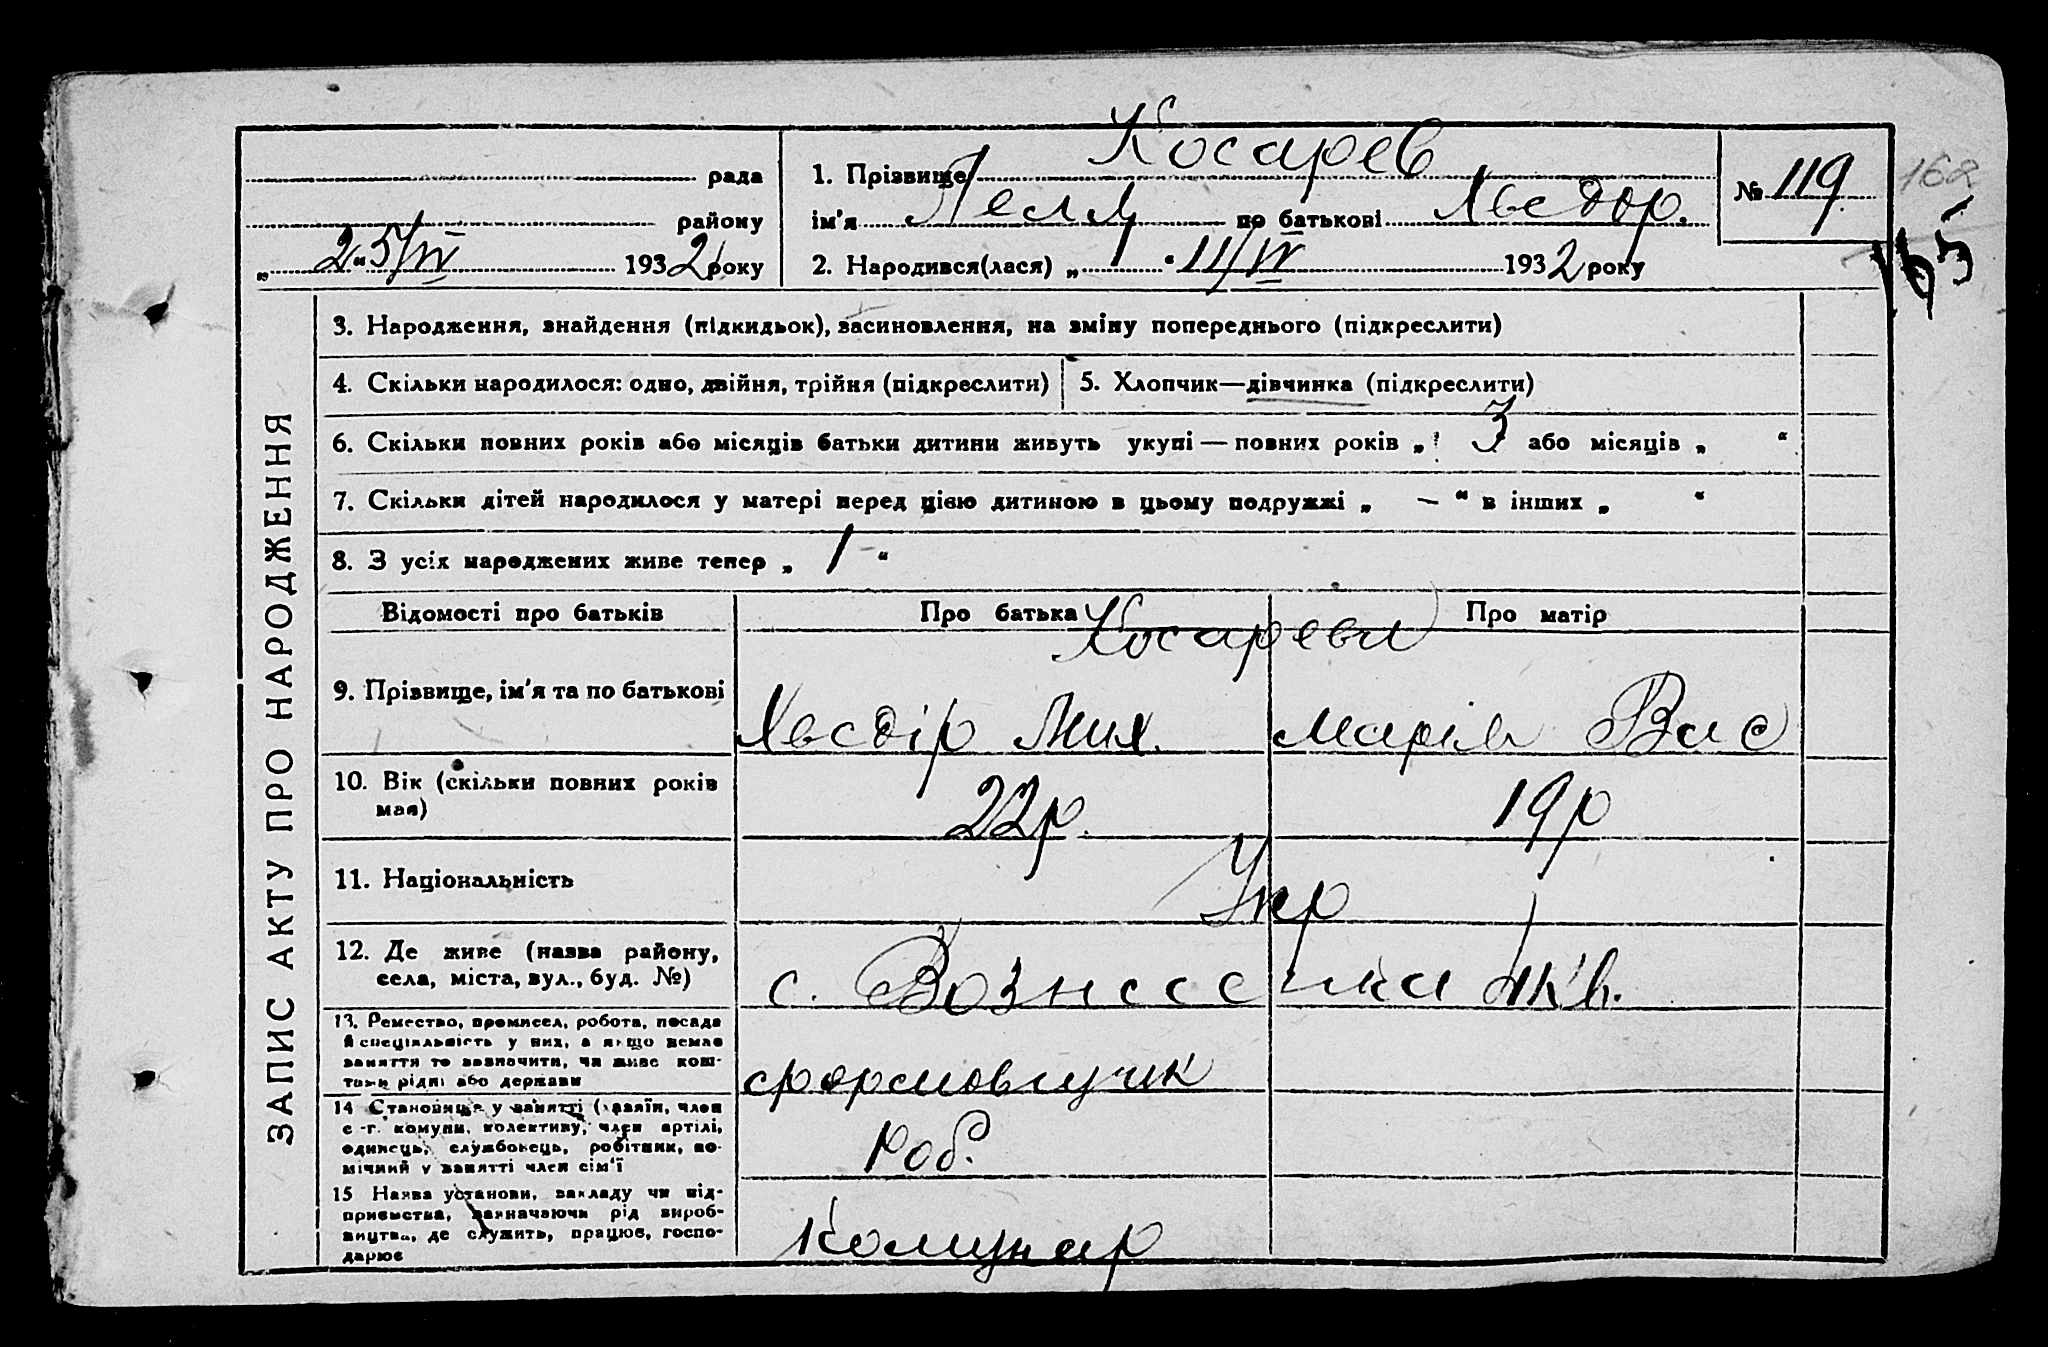 Косарев
рада
1. Прізвище
№ 119
162
ім'я Леля по батькові Хведор.
району
165
„25/IV 1932 року
2. Народився(лася) „ “ 11/IV 1932 року
3. Народження, знайдення (підкидьок), засиновлення, на зміну попереднього (підкреслити)
4. Скільки народилося: одно, двійня, трійня (підкреслити)
5. Хлопчик—дівчинка (підкреслити)
6. Скільки повних років або місяців батьки дитини живуть укупі — повних років „ 3 або місяців „ “
7. Скільки дітей народилося у матері перед цією дитиною в цьому подружжі „ — “ в інших „ “
8. З усіх народжених живе тепер „ 1 “
ЗАПИС АКТУ ПРО НАРОДЖЕННЯ
Відомості про батьків
Про батька
Про матір
Косареви
9. Прізвище, ім'я та по батькові
Хведір Мих.
Марія Вас
10. Вік (скільки повних років
має)
22р.
19р
11. Національність
Укр
12. Де живе (назва району,
села, міста, вул., буд. №)
с. Вознесенка
13. Ремество, промисел, робота, посада
й спеціяльність у них, а якщо немає
заняття то зазначити, чи живе кош-
тами рідні або держави
формовщик
14 Становище у занятті (хазяїн, член
с.-г. комуни, колективу, член артілі,
одинець, службовець, робітник, по-
мічний у занятті член сім'ї
Роб.
15 Назва установи, закладу чи під-
приємства, зазначаючи рід вироб-
ництва, де служить, працює, госпо-
дарює
Комунар